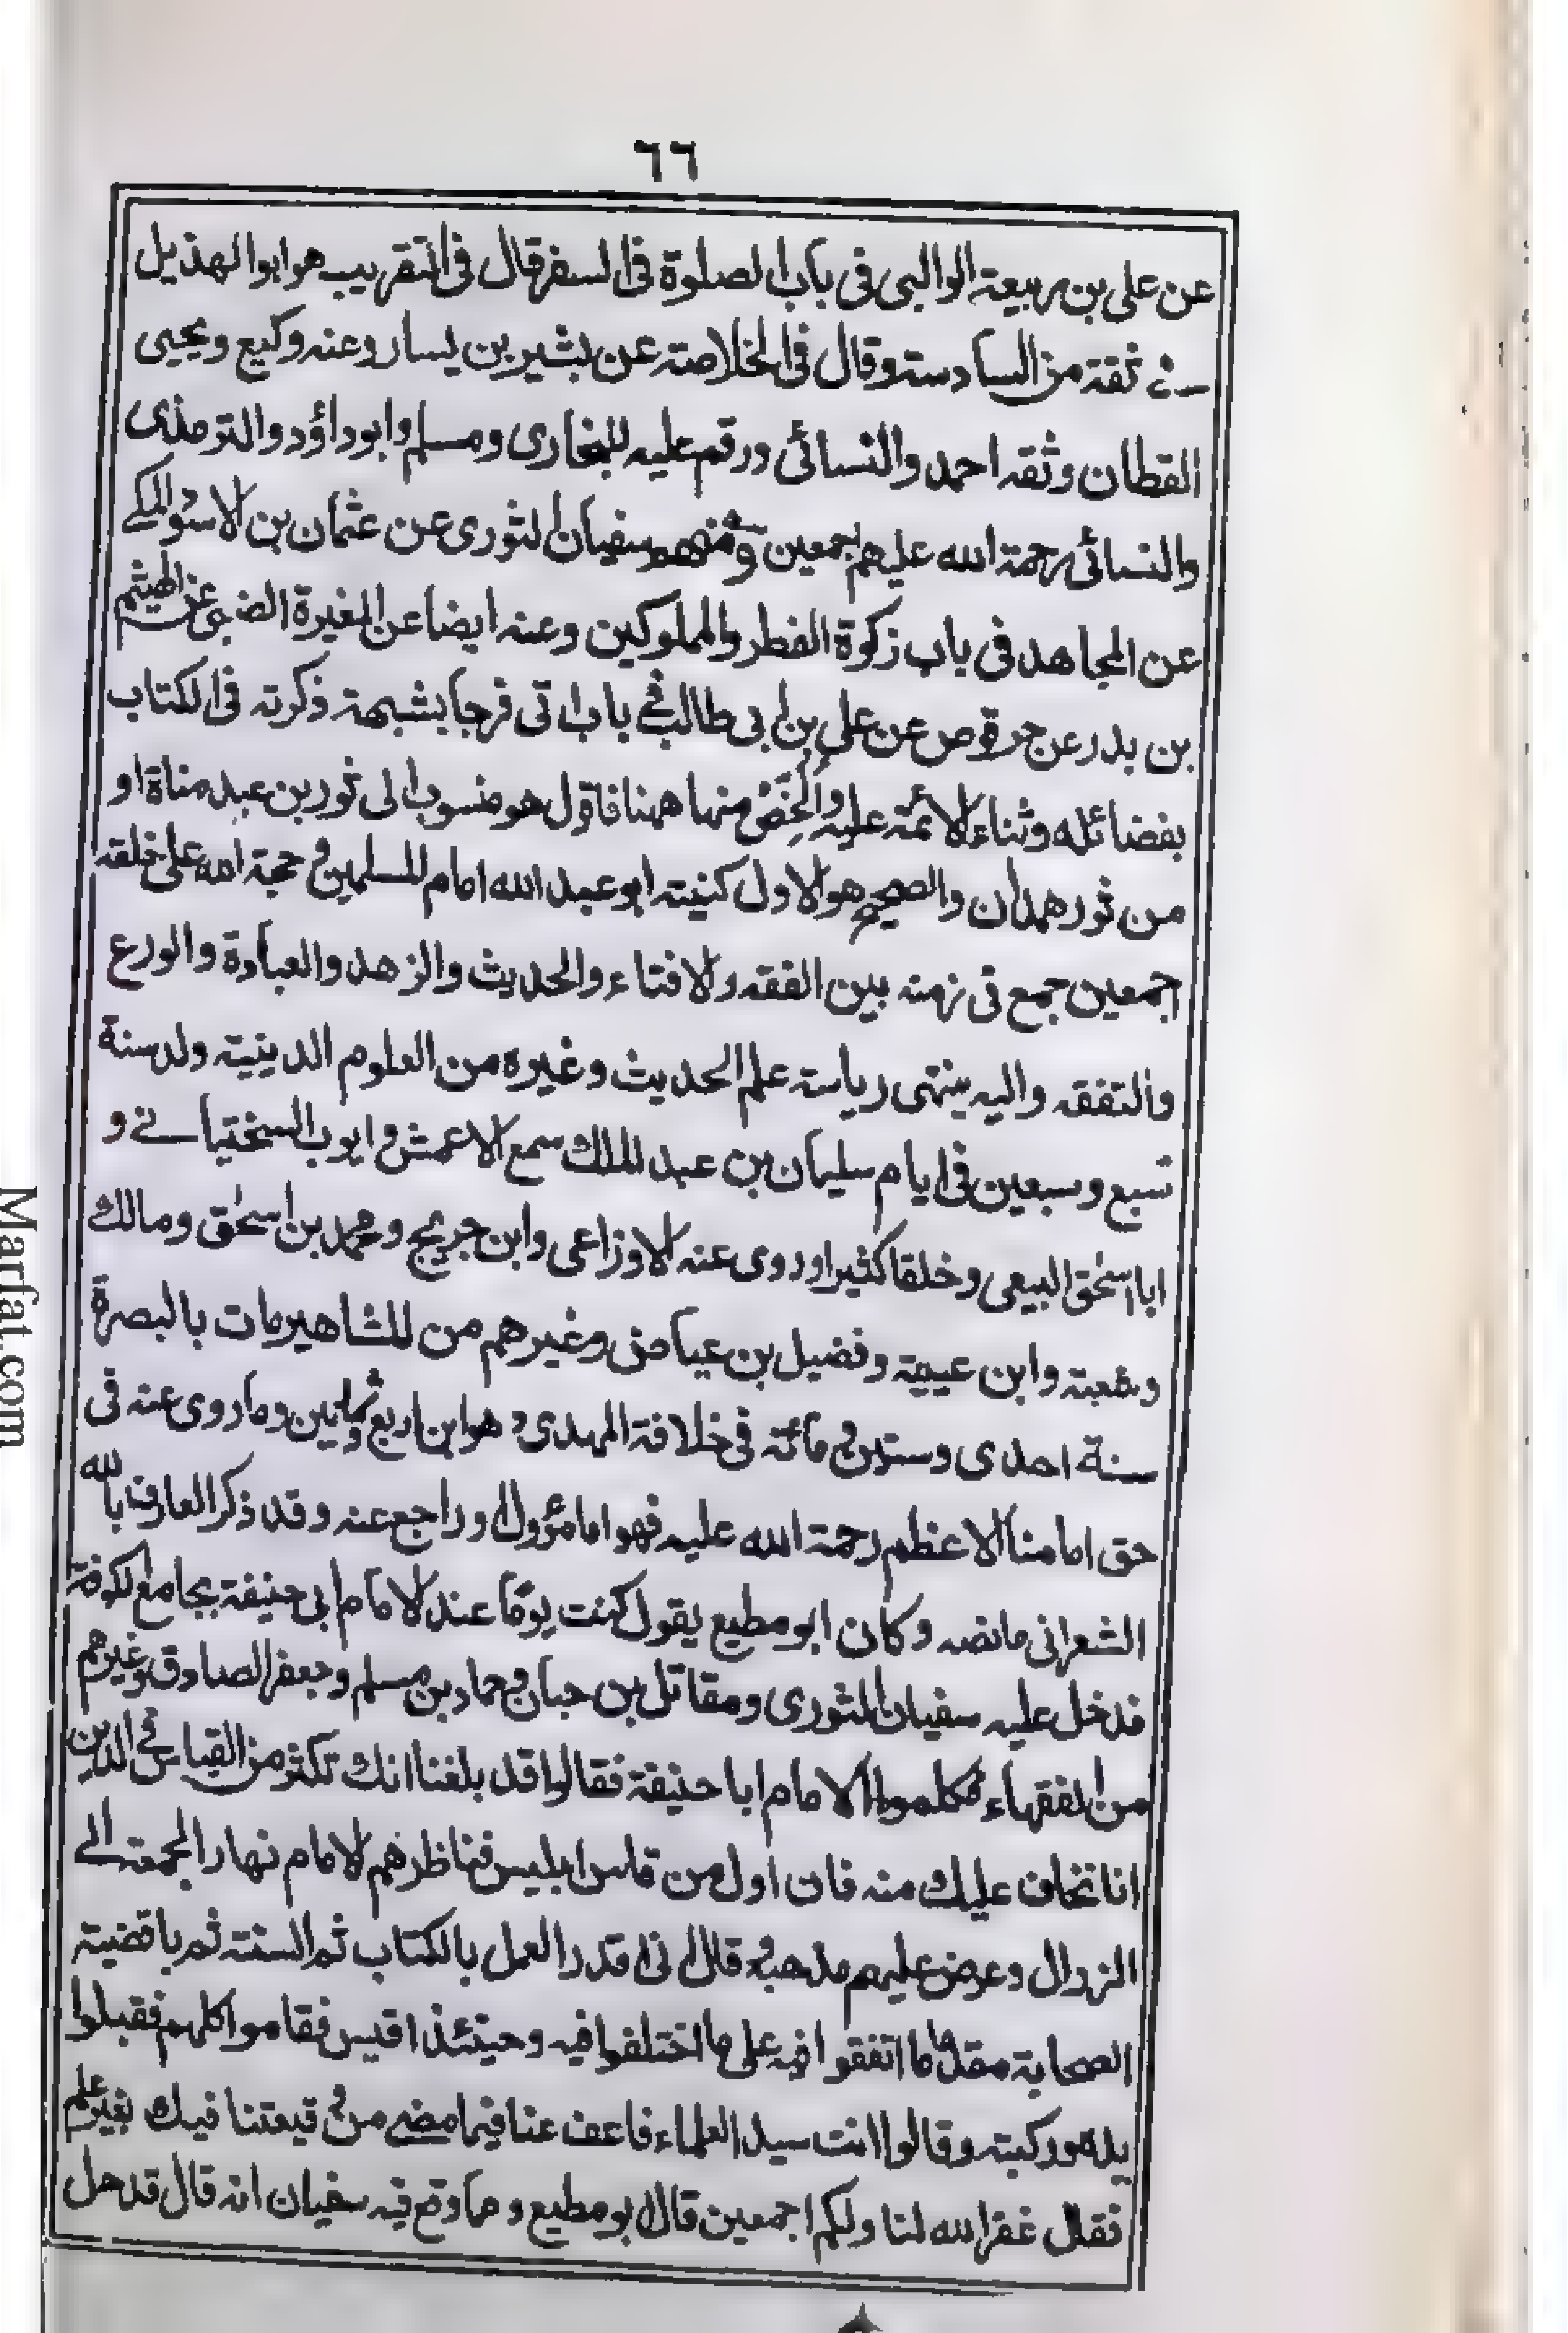 ٦٦
عن على بن ربيعة الوالبى فى باب الصلوة فى السفر قال فى التقريب هو ابو الهذيل
ثقة من السادسة وقال فى الخلاصة عن بشير بن يسار وعنه وكيع ويحيى
القطان وثقه احمد والنسائى ورقم عليه للبخارى ومسلم وابوداؤد والترمذى
والنسائى رحمة الله عليهم اجمعين ومنهم سفيان الثورى عن عثمان بن الاسود المكے
عن المجاهد فى باب زكوة الفطر والمملوكين وعنه ايضا عن المغيرة الضبى عن الهيثم
بن بدر عن حرقوص عن على بن ابى طالب فے باب اتى فرجا بشبهة ذكرته فى الكتاب
بفضائله وثناء الائمة عليه والخص منها ههنا فاقول هو منسوب الى ثور بن عبد مناة او
من ثور همدان والصحيح هو الاول كنيته ابو عبد الله امام المسلمين و حجة الله على خلقه
اجمعين جمع فى زمنه بين الفقه والافتاء والحديث والزهد والعبادة والورع
والتفقه واليه ينتهى رياسة علم الحديث وغيره من العلوم الدينية ولد سنة
تسع وسبعين فى ايام سليمان بن عبد الملك سمع الاعمش وايوب السختيانے و
ابا اسحٰق البيعى وخلقا كثيرا وروى عنه الاوزاعى وابن جريج ومحمد بن اسحٰق ومالك
وشعبة وابن عيينة وفضيل بن عياض وغيرهم من المشاهير مات بالبصرة
سنة احدى وستين و مائة فى خلافة المهدى و هو ابن اربع وثمانين وما روى عنه فى
حق امامنا الاعظم رحمة الله عليه فهو اما مؤول او راجع عنه وقد ذكر العارف بالله
الشعرانى مانصه وكان ابو مطيع يقول كنت يوما عند الامام ابى حنيفة بجامع الكوفة
فدخل عليه سفيان الثورى ومقاتل بن حبان و حماد بن مسلم وجعفر الصادق وغيرهم
من الفقهاء فكلموا الامام ابا حنيفة فقالوا قد بلغنا انك تكثر من القياس فے الدين
انا نخاف عليك منه فان اول من قاس ابليس فناظرهم الامام نهار الجمعة الے
الزوال وعرض عليهم مذهبه و قال انى اقدر العمل بالكتاب ثم السنة ثم باقضية
الصحابة مقدما ما اتفقوا فيه على ما اختلفوا فيه وحينئذ اقيس فقاموا كلهم فقبلوا
يده وركبته وقالوا انت سيد العلماء فاعف عنا فيما مضے من قيعتنا فيك بغير علم
فقال غفر الله لنا ولكم اجمعين قال ابو مطيع و مما وقع فيه سفيان انه قال قد حل
Marfat.com